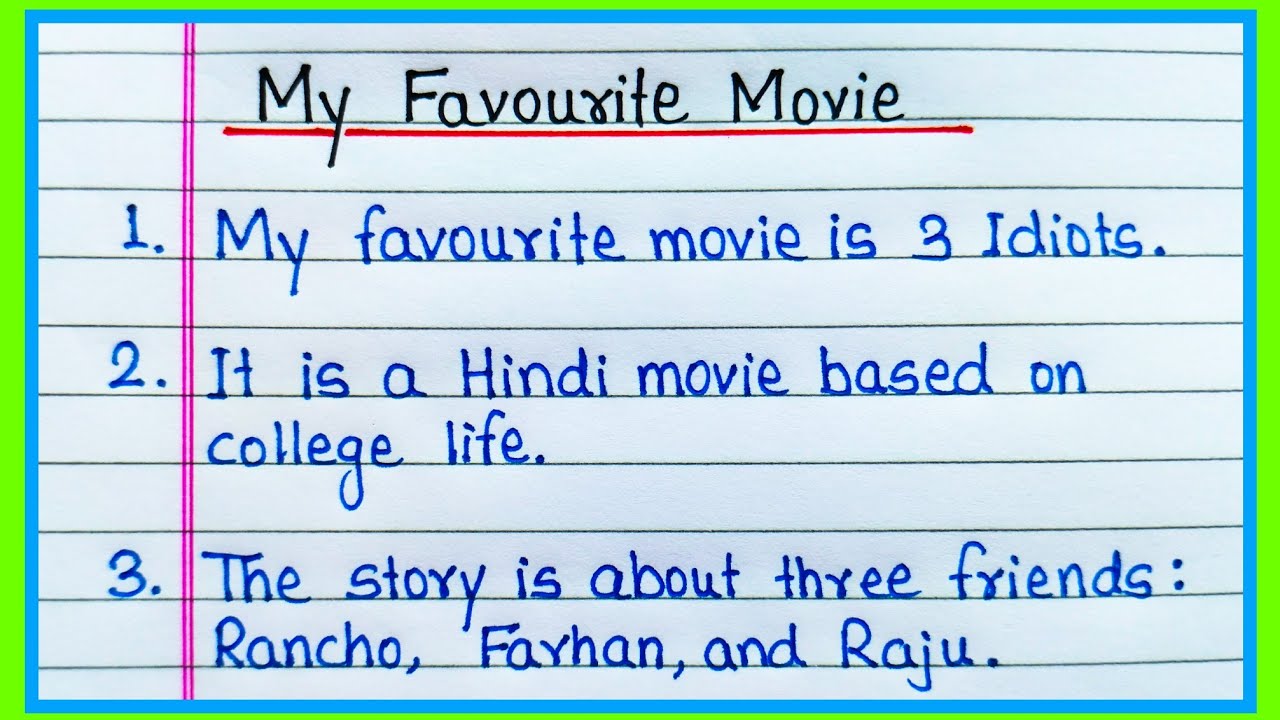 My Favourite Movie
1. My favourite movie is 3 Idiots.
2. It is a Hindi movie based on
college life.
3. The story is about three friends:
Rancho, Farhan, and Raju.